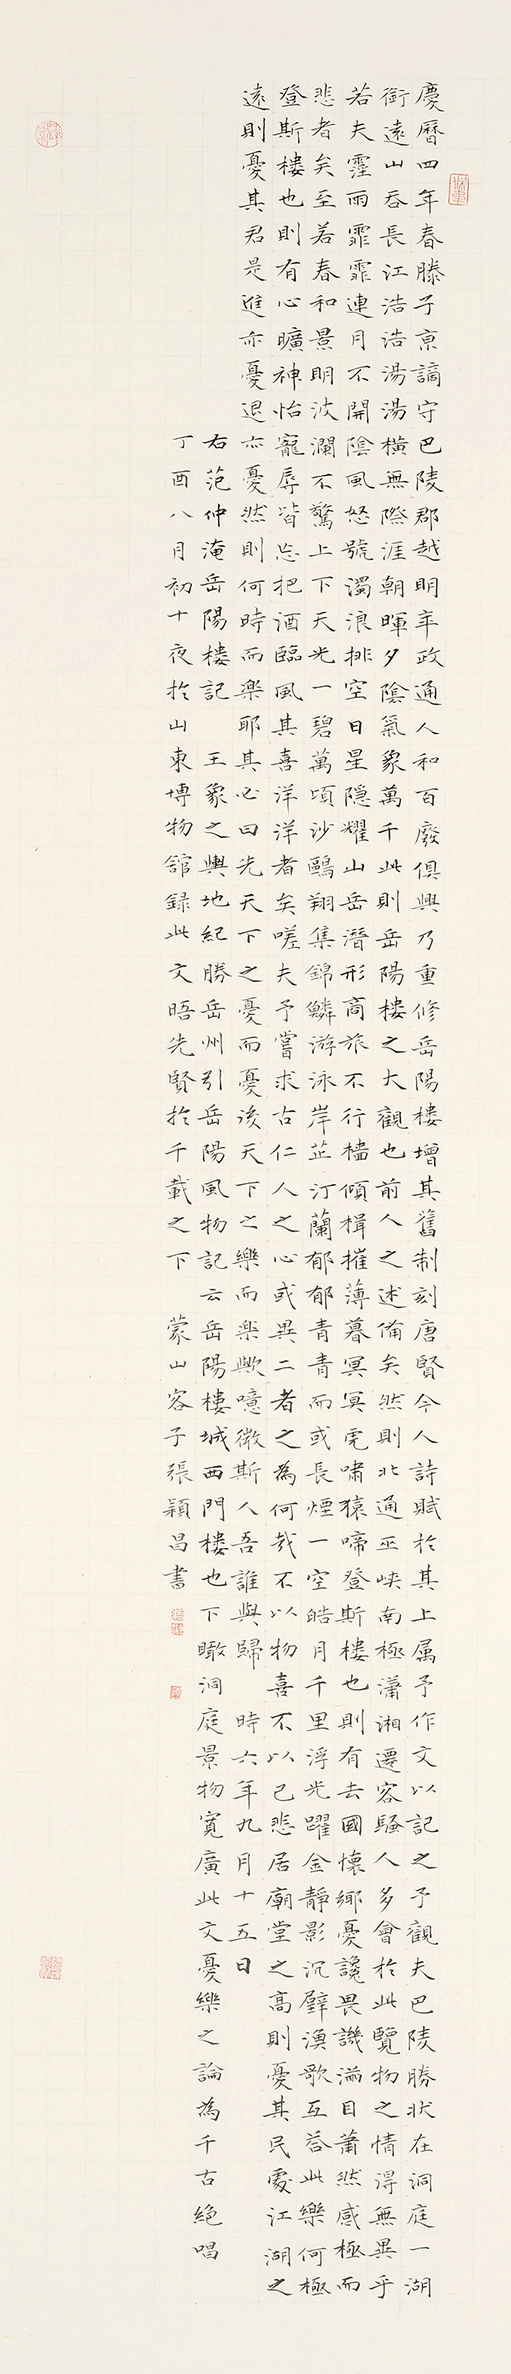 慶曆四年春滕子京謫守巴陵郡越明年政通人和百廢俱興乃重修岳陽樓增其舊制刻唐賢今人詩賦於其上属予作文以記之予觀夫巴陵勝狀在洞庭一湖
銜遠山吞長江浩浩湯湯橫無際涯朝暉夕陰氣象萬千此則岳陽樓之大觀也前人之述備矣然則北通巫峽南極瀟湘遷客騷人多會於此覽物之情得無異乎
若夫霪雨霏霏連月不開陰風怒號濁浪排空日星隱耀山岳潛形商旅不行檣傾楫摧薄暮冥冥虎嘯猿啼登斯樓也則有去國懷鄉憂讒畏譏滿目蕭然感極而
悲者矣至若春和景明波瀾不驚上下天光一碧萬頃沙鷗翔集錦鱗游泳岸芷汀蘭郁郁青青而或長煙一空皓月千里浮光躍金靜影沉璧漁歌互答此樂何極
登斯樓也則有心曠神怡寵辱皆忘把酒臨風其喜洋洋者矣嗟夫予嘗求古仁人之心或異二者之為何哉不以物喜不以己悲居廟堂之高則憂其民處江湖之
遠則憂其君是進亦憂退亦憂然則何時而樂耶其必曰先天下之憂而憂後天下之樂而樂歟噫微斯人吾誰與歸 時六年九月十五日
右范仲淹岳陽樓記 王象之輿地紀勝岳州引岳陽風物記云岳陽樓城西門樓也下瞰洞庭景物寬廣此文憂樂之論為千古絕唱
丁酉八月初十夜於山東博物館録此文晤先賢於千載之下 蒙山客子張穎昌書